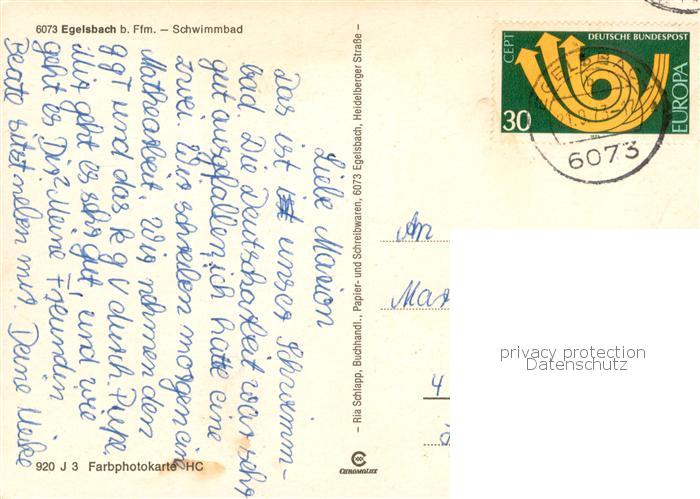 6073 Egelsbach b. Ffm. — Schwimmbad
Liebe Marion
Das ist unser Schwimm-
bad Die Deutscharbeit war sehr
gut ausgefallen ich hatte eine
zwei. Wir schreiben morgen ein
Mathearbeit. Wir nehmen den
ggT und das kgV durch.
Mir geht es sehr gut, und wie
geht es Dir? Meine Freundin
Beate sitzt neben mir. Deine
920 J 3 Farbphotokarte HC
– Ria Schlapp, Buchhandl., Papier- und Schreibwaren, 6073 Egelsbach, Heidelberger Straße –
CHROMOLUX
CEPT
DEUTSCHE BUNDESPOST
EUROPA
30
6073
An
Mar
4
privacy protection
Datenschutz